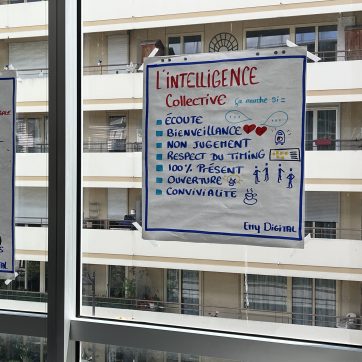 L'INTELLIGENCE
Collective ça marche si =
ÉCOUTE
BIENVEILLANCE
NON JUGEMENT
RESPECT DU TIMING
100% PRÉSENT
OUVERTURE
CONVIVIALITÉ
Emy DIGITAL